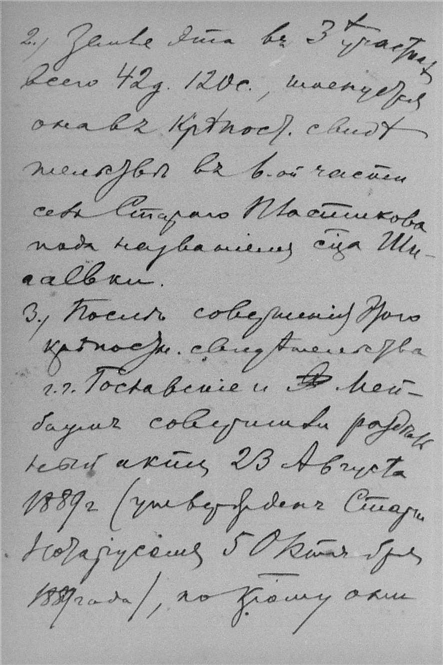 2.) Земля эта въ 3х участках
всего 42д. 120с., именуется
она въ Крѣпост. свидѣ
тельствѣ въ 1-ой части
села Стараго
подъ названіемъ с-ца
3.) Послѣ совершенія этого
крѣпостн. свидѣтельства
г.г. и Мей-
баумъ совершили раздѣль
ный актъ 23 Августа
1889г (утвержденъ Старш
Нотаріусомъ 5 Октября
1889 года), по которому они